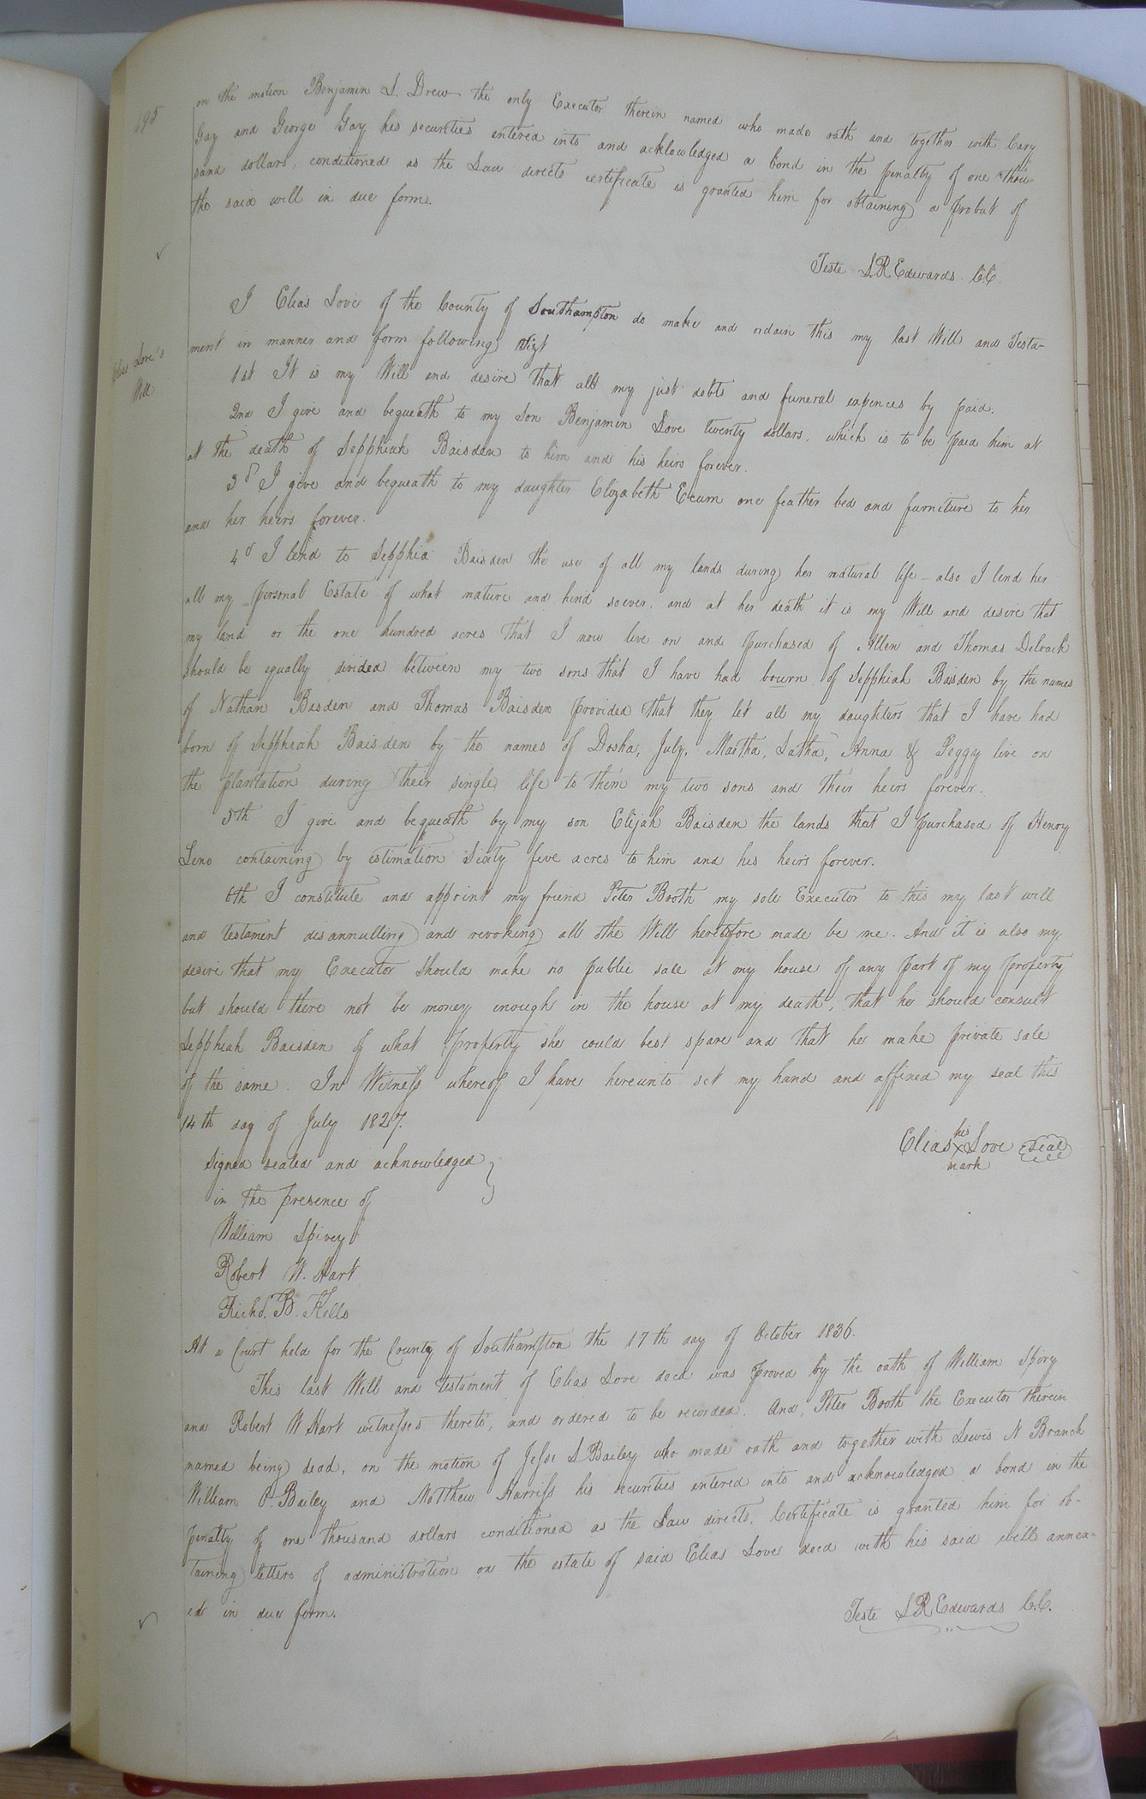 on the motion Benjamin S. Drew the only Executor therein named who made oath and together with Cary
Gay and George Gay his securities entered into and acklowledged a bond in the penalty of one thou-
sand dollars, conditioned as the Law directs certificate is granted him for obtaining a probat of
the said will in due form.
Teste L.R. Edwards C.C.
Elias Love's
Will
I Elias Love of the County of Southampton do make and ordain this my last Will and Testa-
ment in manner and form following Vizt
1st It is my Will and desire that all my just debts and funeral expences by paid.
2nd I give and bequeath to my Son Benjamin Love twenty dollars, which is to be paid him at
at the death of Sepphiah Baisden to him and his heirs forever.
3d I give and bequeath to my daughter Elizabeth one feather bed and furniture to her
and her heirs forever.
4d I lend to Sepphia Baisden the use of all my lands during her natural life - also I lend her
all my personal Estate of what nature and kind soever, and at her death it is my Will and desire that
my land or the one hundred acres that I now live on and purchased of Allen and Thomas Deloach
should be equally divided between my two sons that I have had bourn of Sepphiah Baisden by the names
of Nathan Basden and Thomas Baisden provided that they let all my daughters that I have had
born of Sepphiah Baisden by the names of Dosha, July, Martha, Latha, Anna & Peggy live on
the plantation during their single life to them my two sons and their heirs forever.
5th I give and bequeath by my son Elijah Baisden the lands that I purchased of Henry
containing by estimation Sixty five acres to him and his heirs forever.
6th I constitute and appoint my friend Peter Booth my sole Executor to this my last will
and testament disannulling and revoking all othe Will heretofore made be me. And it is also my
desire that my Executor should make no public sale at my house of any part of my property
but should there not be money enough in the house at my death, that he should consult
Sepphiah Baisden of what property she could best spare and that he make private sale
of the same. In Witness whereof I have hereunto set my hand and affixed my seal this
14th day of July 1827.
Elias his X mark Love Seal
Signed sealed and acknowledged
in the presence of
William Spivey
Robert W. Hart
Richd. B. Kello
At a Court held for the County of Southampton the 17th day of October 1836.
This last Will and testament of Elias Love decd was proved by the oath of William Spivy
and Robert W Hart witnesses thereto, and ordered to be recorded. And, Peter Booth the Executor therein
named being dead, on the motion of Jesse S Bailey who made oath and together with Lewis N Branch
William P. Bailey and Matthew Harriss his securities entered into and acknowledged a bond in the
penalty of one thousand dollars conditioned as the Law directs, Certificate is granted him for ob-
taining letters of administration on the estate of said Elias Love decd with his said will annex-
ed in due form.
Teste L.R. Edwards C.C.